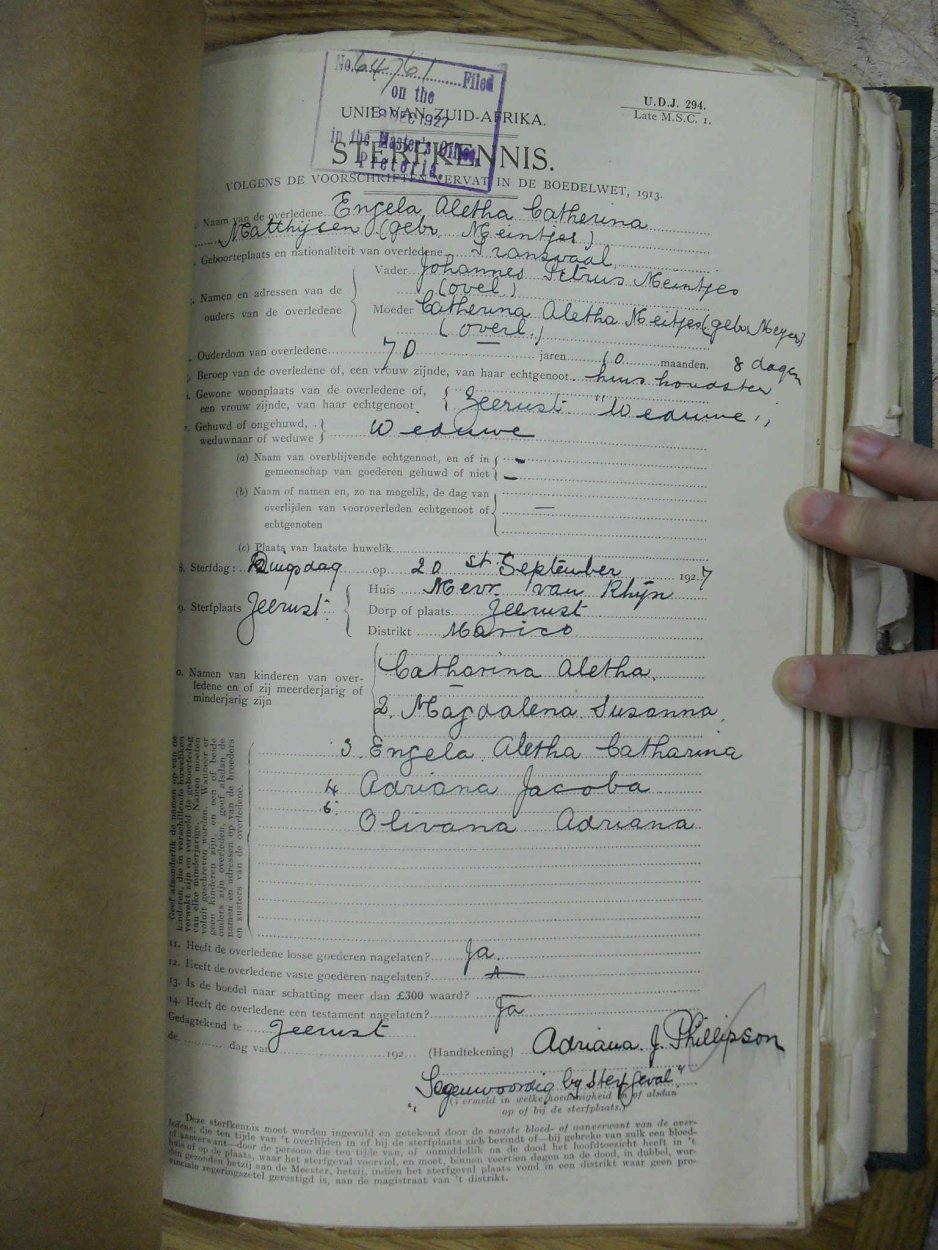 No. 64761 Filed
on the
DEC 1927
in the Master's Office,
Pretoria.
U.D.J. 294.
Late M.S.C. 1.
UNIE VAN ZUID-AFRIKA.
STERFKENNIS.
VOLGENS DE VOORSCHRIFTEN VERVAT IN DE BOEDELWET, 1913.
Naam van de overledene Engela Aletha Catherina
Matthijsen (gebr. Meintjes)
Geboorteplaats en nationaliteit van overledene Transvaal
Namen en adressen van de
ouders van de overledene
Vader Johannes Petrus Meintjes
(ovel.)
Moeder Catherina Aletha Meitjes (gebr. Meyer)
(overl.)
Ouderdom van overledene 70 jaren 10 maanden. 8 dagen
Beroep van de overledene of, een vrouw zijnde, van haar echtgenoot huis houdster
Gewone woonplaats van de overledene of,
een vrouw zijnde, van haar echtgenoot
Zeerust "Weduwe"
Gehuwd of ongehuwd,
weduwnaar of weduwe
Weduwe
(a) Naam van overblijvende echtgenoot, en of in
gemeenschap van goederen gehuwd of niet
(b) Naam of namen en, zo na mogelik, de dag van
overlijden van vooroverleden echtgenoot of
echtgenoten
(c) Plaats van laatste huwelik
8. Sterfdag: Dingsdag op 20 st September 1927
9. Sterfplaats Zeerust
Huis Mevr van Rhijn
Dorp of plaats Zeerust
Distrikt Marico
0. Namen van kinderen van over-
ledene en of zij meerderjarig of
minderjarig zijn
Catharina Aletha
2. Magdalena Susanna
3. Engela Aletha Catharina
4 Adriana Jacoba
5. Olivana Adriana
Geef afzonderlik de namen op van de
kinderen, die in verschillende huweliken
verwekt zijn en vermeld de geboortedag
van elke minderjarige. Namen moeten
voluit geschreven worden. Wanneer er
geen kinderen zijn, en een of beide
ouders zijn overleden, geef alsdan de
namen en adressen op van de broeders
en zusters van de overledene.
11. Heeft de overledene losse goederen nagelaten? Ja
12. Heeft de overledene vaste goederen nagelaten?
13. Is de boedel naar schatting meer dan £300 waard?
14. Heeft de overledene een testament nagelaten? Ja
Gedagtekend te Zeerust
de dag van 192
(Handtekening) Adriana J. Phillipson
"Tegenwoordig by sterfgeval"
(Vermeld in welke hoedanigheid en of alsdan
op of bij de sterfplaats.)
Deze sterfkennis moet worden ingevuld en getekend door de naaste bloed- of aanverwant van de over-
ledene, die ten tijde van 't overlijden in of bij de sterfplaats zich bevindt of—bij gebreke van zulk een bloed-
of aanverwant—door de persoon die ten tijde van, of onmiddellik na de dood het hoofdtoezicht heeft in 't
huis of op de plaats, waar het sterfgeval voorviel, en moet, binnen veertien dagen na de dood, in dubbel, wor-
den gezonden hetzij aan de Meester, hetzij, indien het sterfgeval plaats vond in een distrikt waar geen pro-
vinciale regeringszetel gevestigd is, aan de magistraat van 't distrikt.